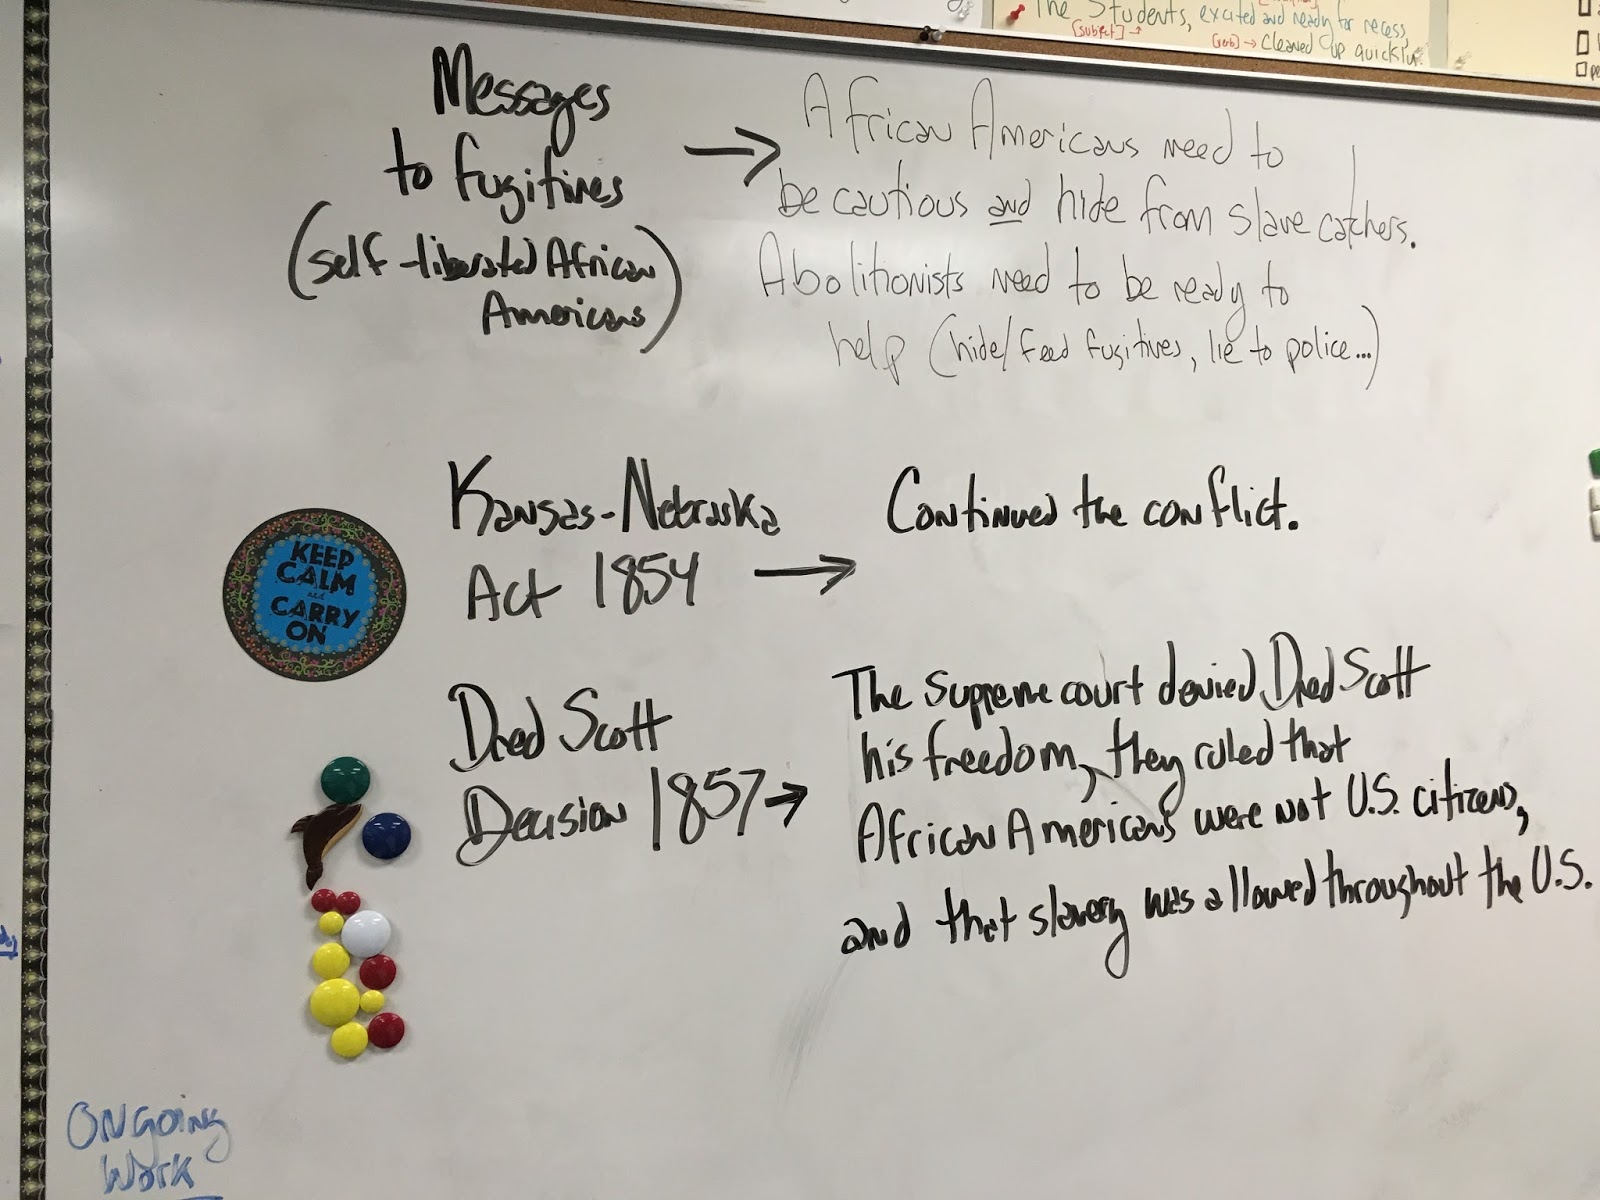 The Students, excited and ready for recess,
[subject] →
[verb] → cleaned up quickly.
Messages
to fugitives
(self-liberated African
Americans)
→ African Americans need to
be cautious and hide from slave catchers.
Abolitionists need to be ready to
help (hide/feed fugitives, lie to police...)
Kansas-Nebraska
Act 1854 →
Continued the conflict.
KEEP
CALM
and
CARRY
ON
Dred Scott
Decision 1857 →
The Supreme court denied Dred Scott
his freedom, they ruled that
African Americans were not U.S. citizens,
and that slavery was allowed throughout the U.S.
ONgoing
Work